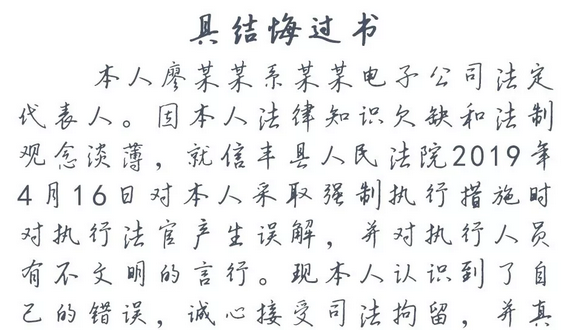 具结悔过书
本人廖某某系某某电子公司法定
代表人。因本人法律知识欠缺和法制
观念淡薄，就信丰县人民法院2019年
4月16日对本人采取强制执行措施时
对执行法官产生误解，并对执行人员
有不文明的言行。现本人认识到了自
己的错误，诚心接受司法拘留，并真